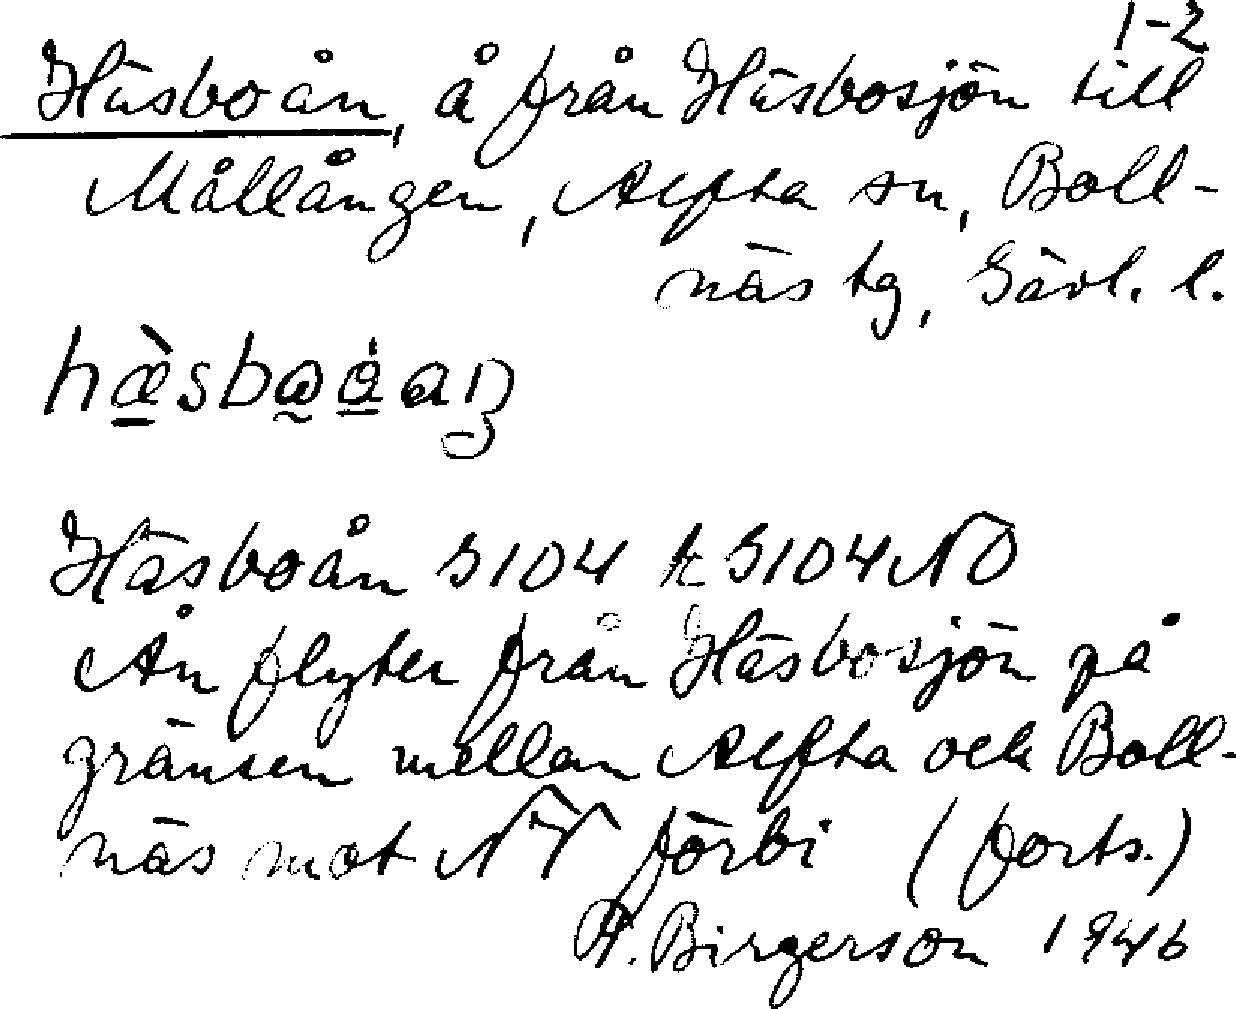 1-2
Häsboån, å från Häsbosjön till
Mållången, Alfta sn, Boll-
näs tg, Gävl. l.
Häsboån S104 k G104NO
Ån flyter från Häsbosjön på
gränsen mellan Alfta och Boll-
näs mot NV förbi (forts.)
Birgerson 1946